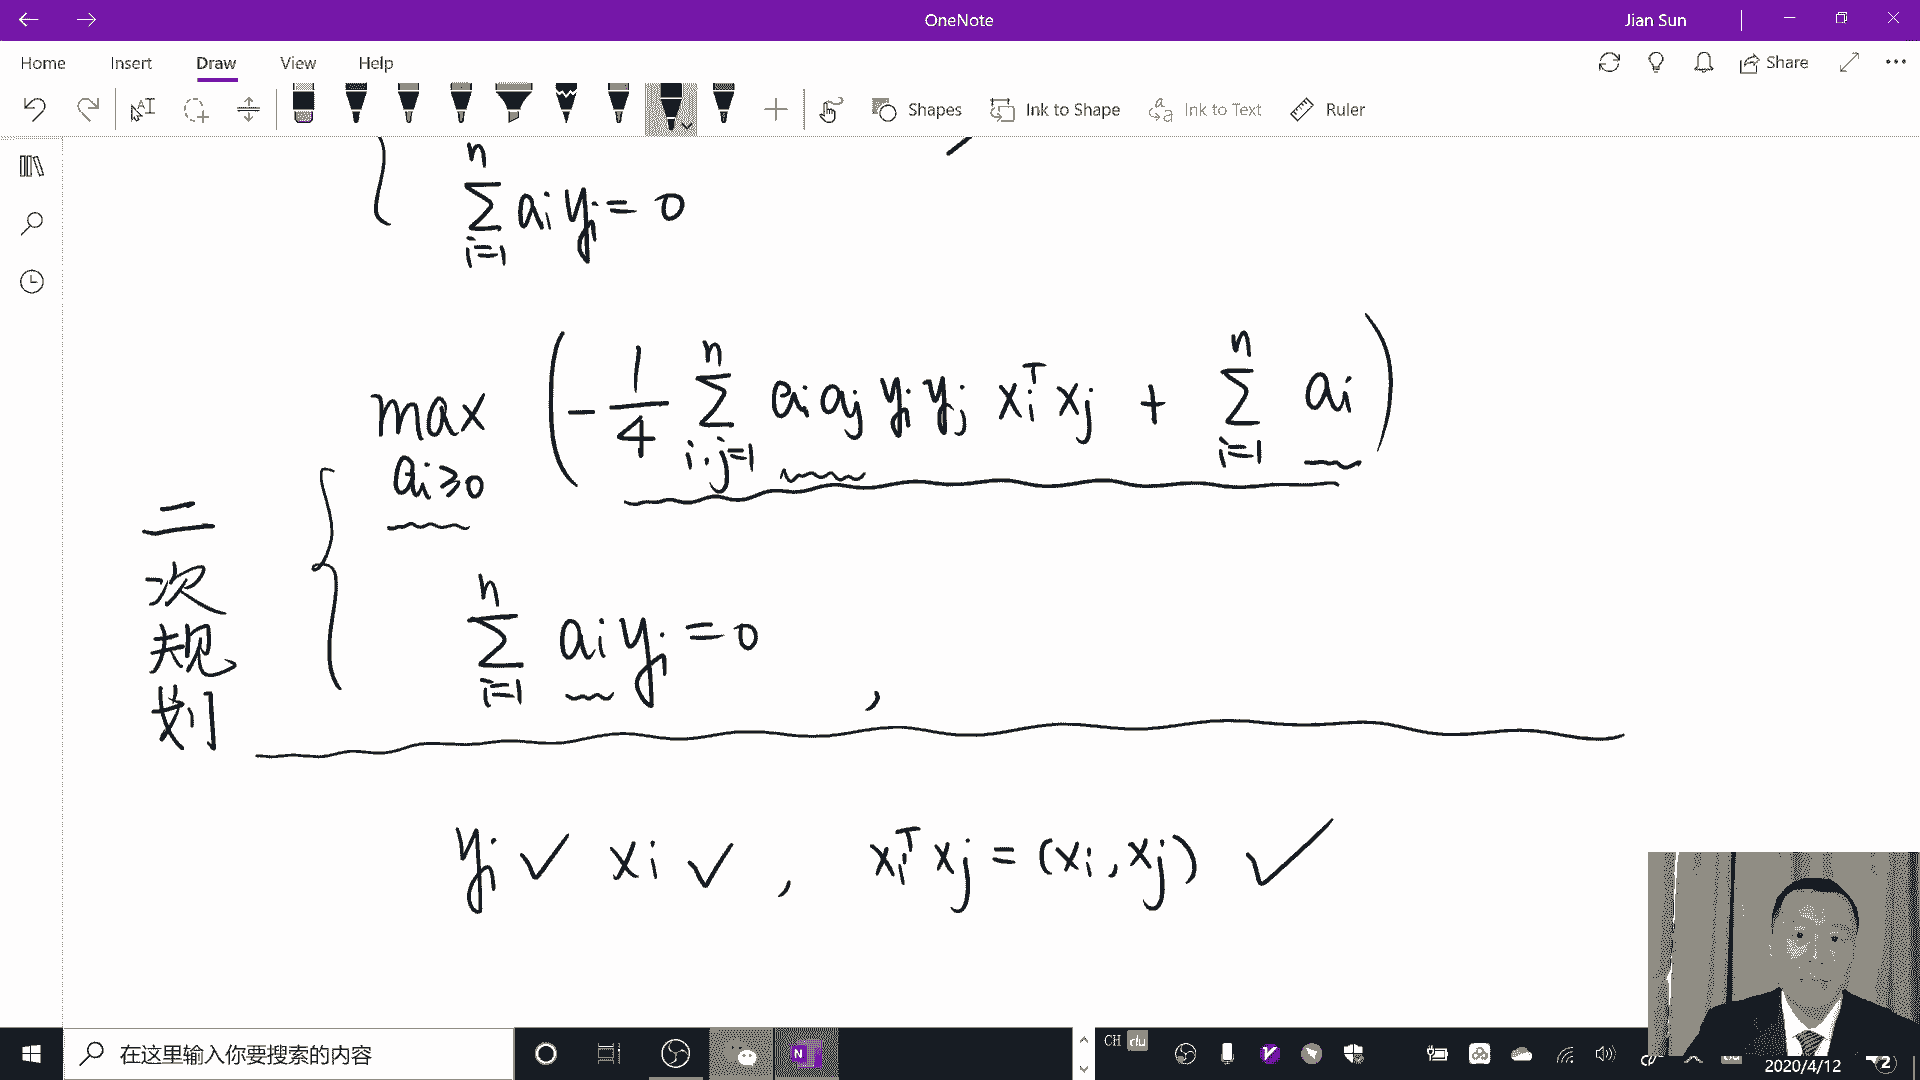 OneNote
Jian Sun
Home Insert Draw View Help
Share
Shapes Ink to Shape Ink to Text Ruler
n
∑ aᵢ yᵢ = 0
i=1
max ( - 1/4 ∑ aᵢ aⱼ yᵢ yⱼ xᵢᵀ xⱼ + ∑ aᵢ )
n n
i.j=1 i=1
aᵢ ≥ 0
二次规划
n
∑ aᵢ yᵢ = 0 ,
i=1
yᵢ ✓ xᵢ ✓ , xᵢᵀ xⱼ = (xᵢ, xⱼ) ✓
在这里输入你要搜索的内容
CH
2020/4/12
2